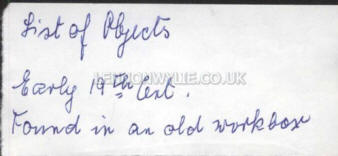 List of Objects
Early 19th Cent.
LENNONWYLIE.CO.UK
Found in an old workbox